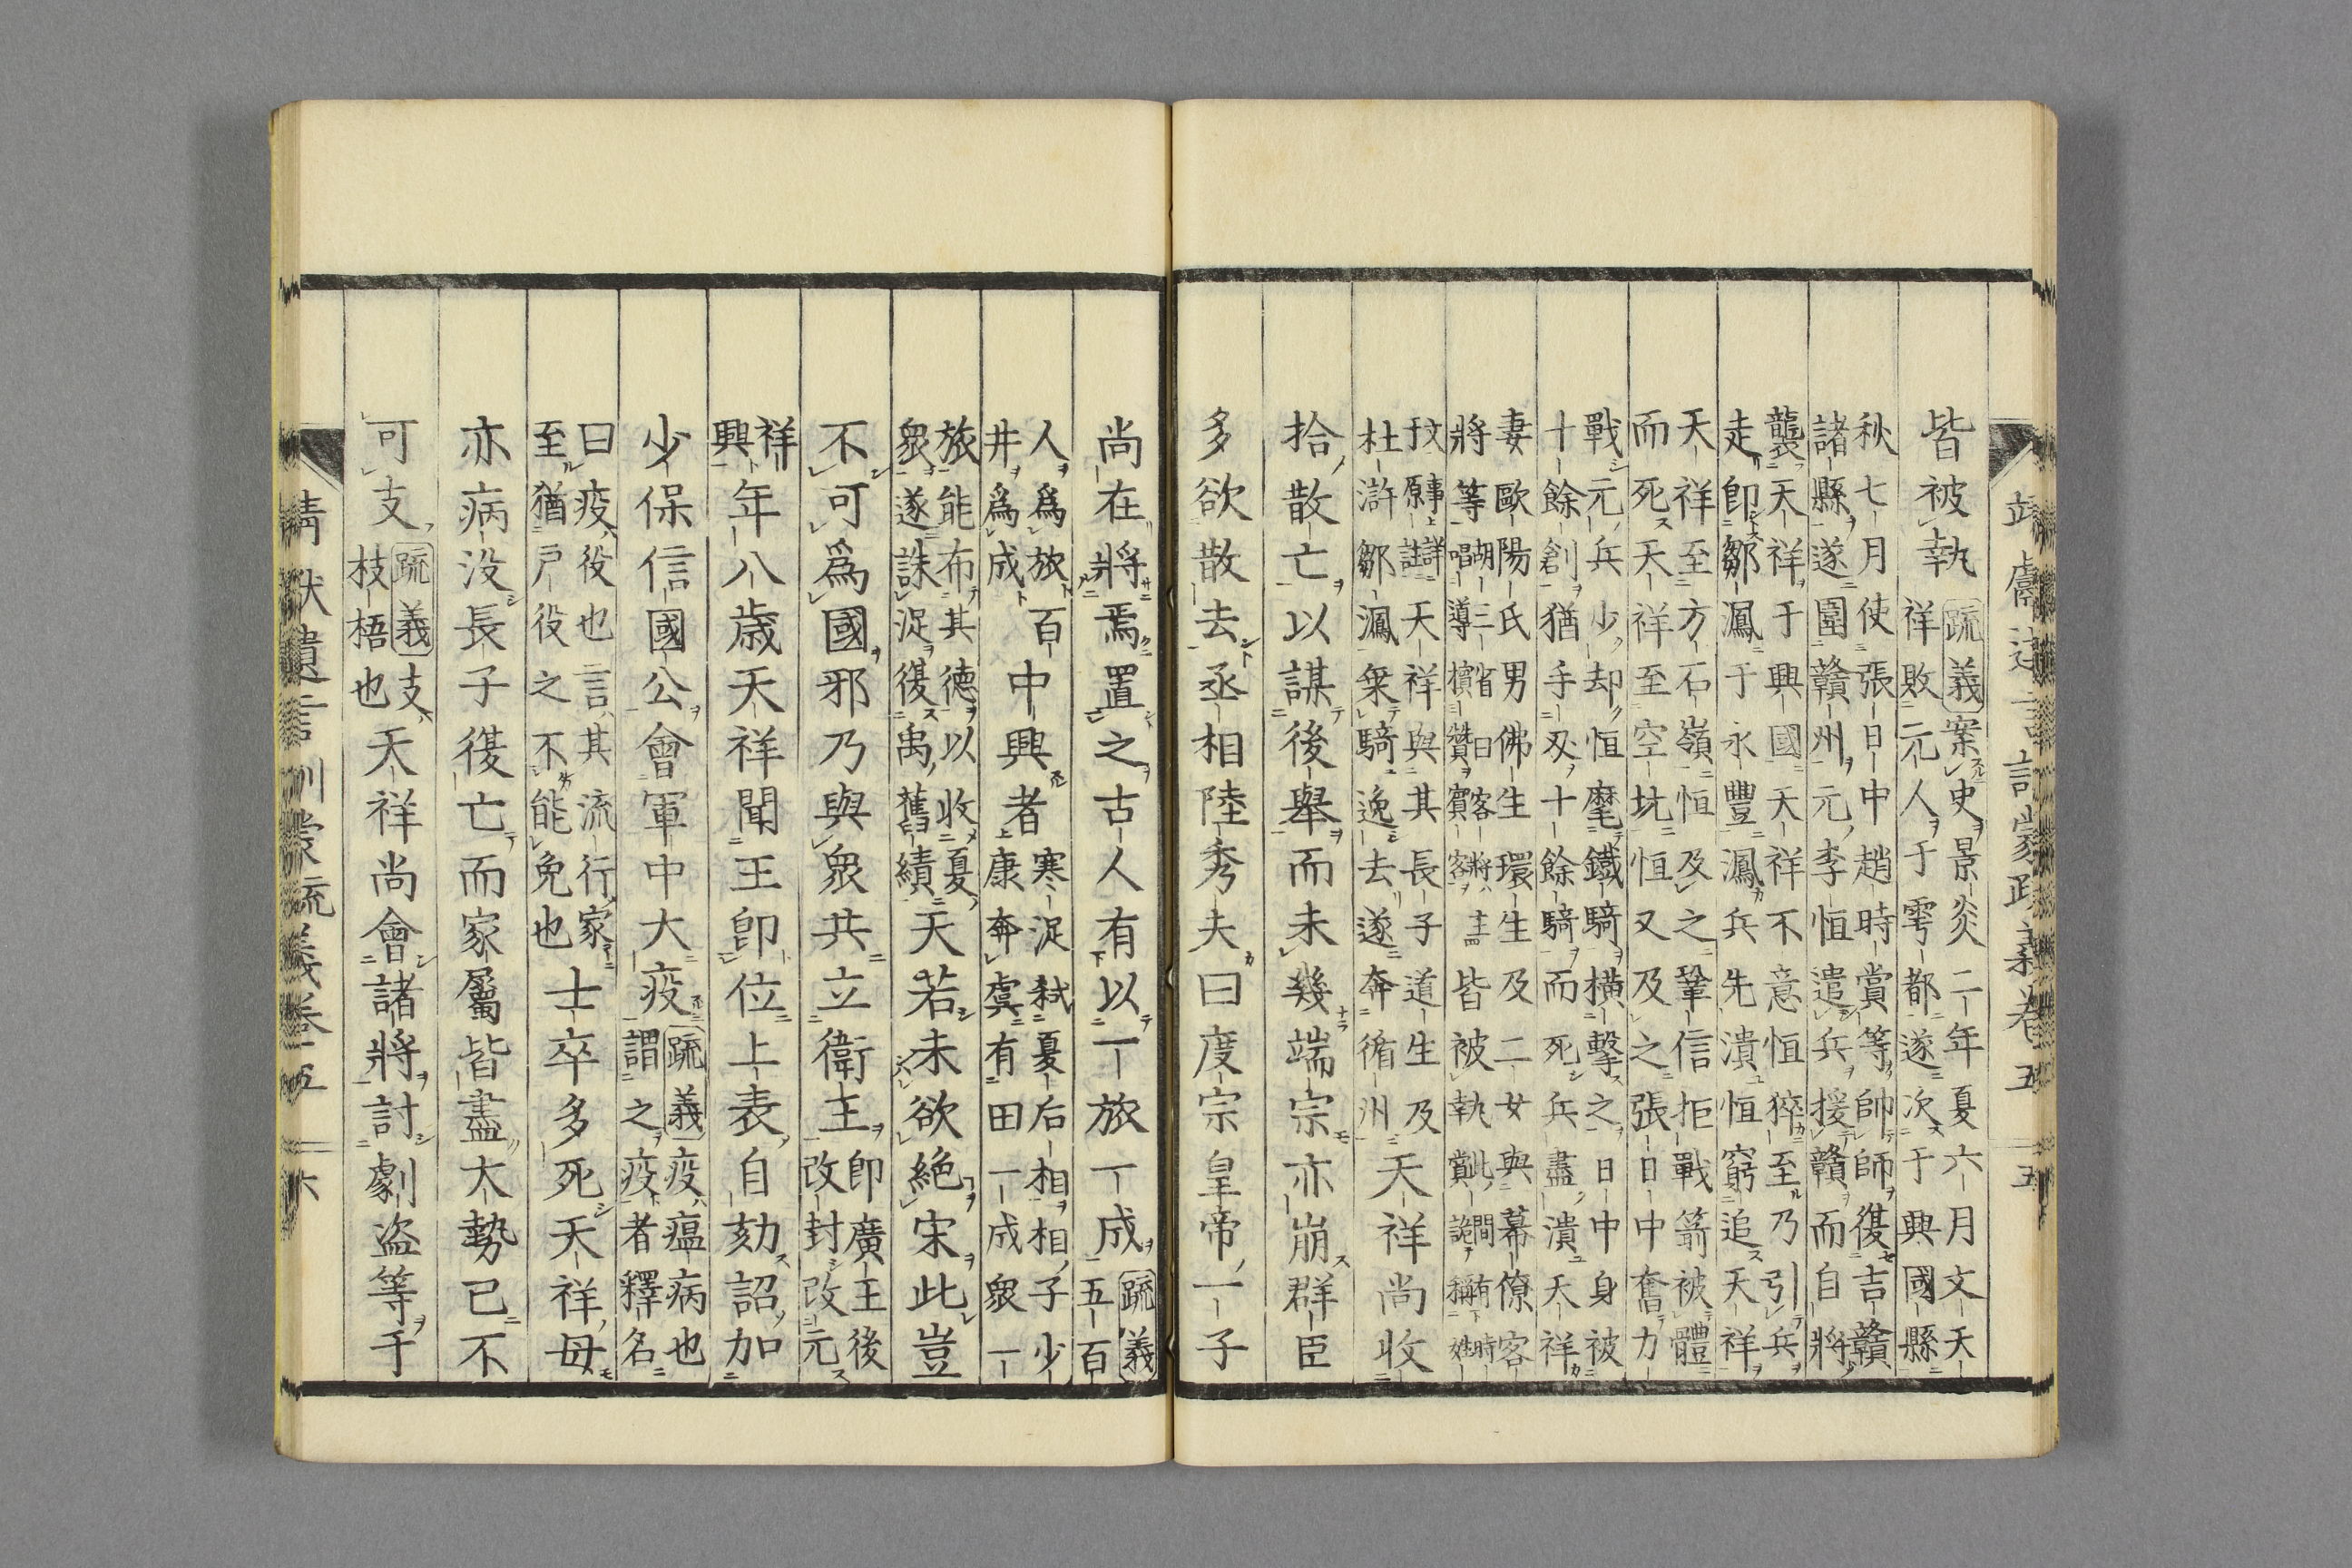 靖獻遺言訓蒙疏義卷五 五
皆被執 疏義 案史景炎二年夏六月文天
祥敗元人于雩都遂次于興國縣
秋七月使張日中趙時賞等帥師復吉贛
諸縣遂圍贛州元李恒遣兵援贛而自將
襲天祥于興國天祥不意恒猝至乃引兵
走卽鄒㵯于永豐㵯兵先潰恒窮追天祥
天祥至方石嶺恒及之鞏信拒戰箭被體
而死天祥至空坑恒又及之張日中奮力
戰元兵少却恒麾鐵騎橫擊之日中身被
十餘創猶手刃十餘騎而死兵盡潰天祥
妻歐陽氏男佛生環生及二女與幕僚客
將等 胡三省曰客將主唱導擯贊賓客 皆被執 此間有時賞詭稱姓
文事辯于原註 天祥與其長子道生及
杜滸鄒㵯乗騎逸去遂奔循州 天祥尚收
拾散亡以謀後舉而未幾端宗亦崩群臣
多欲散去丞相陸秀夫曰度宗皇帝一子
尚在將焉置之古人有以一旅一成 疏義 五百
人爲旅百井爲成 中興者 寒浞弑夏后相相子少
康奔虞有田一成眾一
旅能布其德以收夏
眾遂誅浞復禹舊績 天若未欲絶宋此豈
不可爲國邪乃與眾共立衛王 卽廣王後
改封改元
祥興 年八歲天祥聞王卽位上表自劾詔加
少保信國公會軍中大疫 疏義 疫瘟病也
謂之疫者釋名
曰疫役也言其流行家
至猶戸役之不能免也 士卒多死天祥母
亦病没長子復亡而家屬皆盡大勢已不
可支 疏義 支枝梧也 天祥尚會諸將討劇盗等千
靖獻遺言訓蒙疏義卷五 六